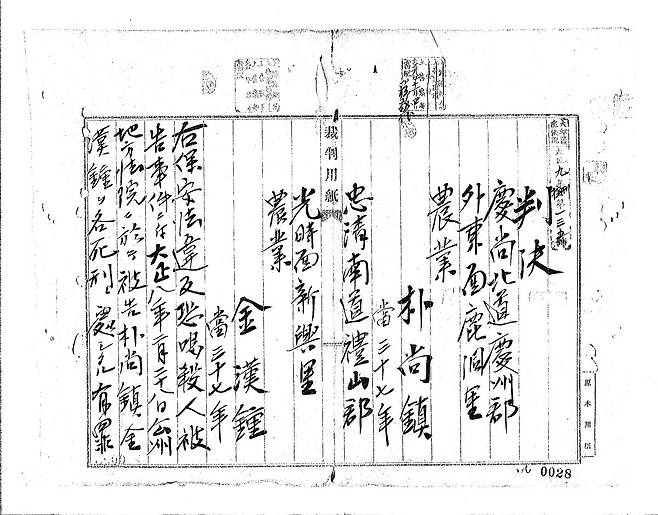 判決
慶尚北道慶州郡
外東面鹿洞里
農業
朴尚鎮
當三十七年
忠清南道禮山郡
光時面新興里
農業
金漢鍾
當三十七年
右保安法違反恐喝殺人被
告事件ニ付大正八年二月二十八日公州
地方法院ニ於テ被告朴尚鎮金
漢鍾ヲ各死刑ニ處シタル有罪
裁判用紙
原本用紙
0028